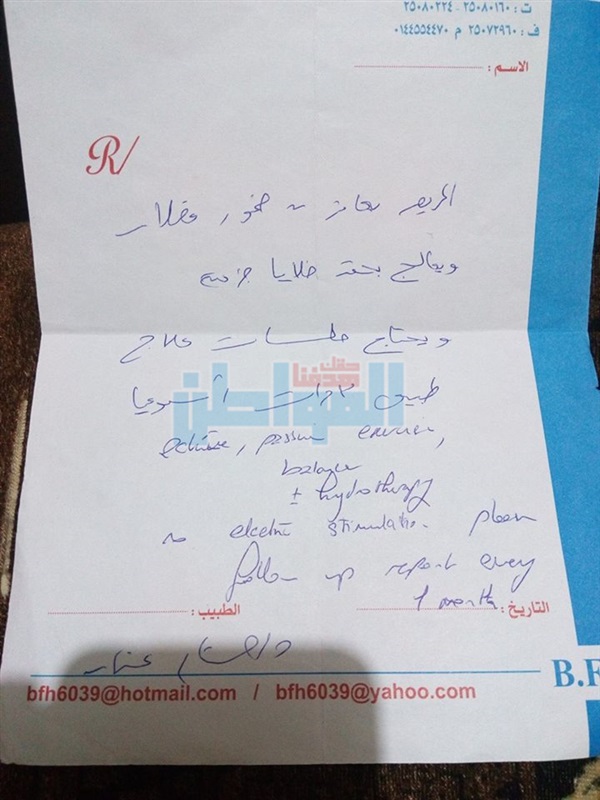 ت : ٢٥٠٨٠١٦٠ - ٢٥٠٨٠٢٢٤
ف : ٢٥٠٧٢٩٦٠ م ٠١٤٤٥٥٤٤٧٠
الاسم :
R/
المريض يعاني من ضمور عضلات
ويعالج بحقن خلايا جزعية
ويحتاج جلسات علاج
طبيعي ٣ مرات أسبوعيا
حقك هدفنا
المواطن
active, passive exercises,
balance
± hydrotherapy
no electric stimulation. please
follow up report every
1 month
التاريخ :
الطبيب :
B.F
bfh6039@hotmail.com / bfh6039@yahoo.com